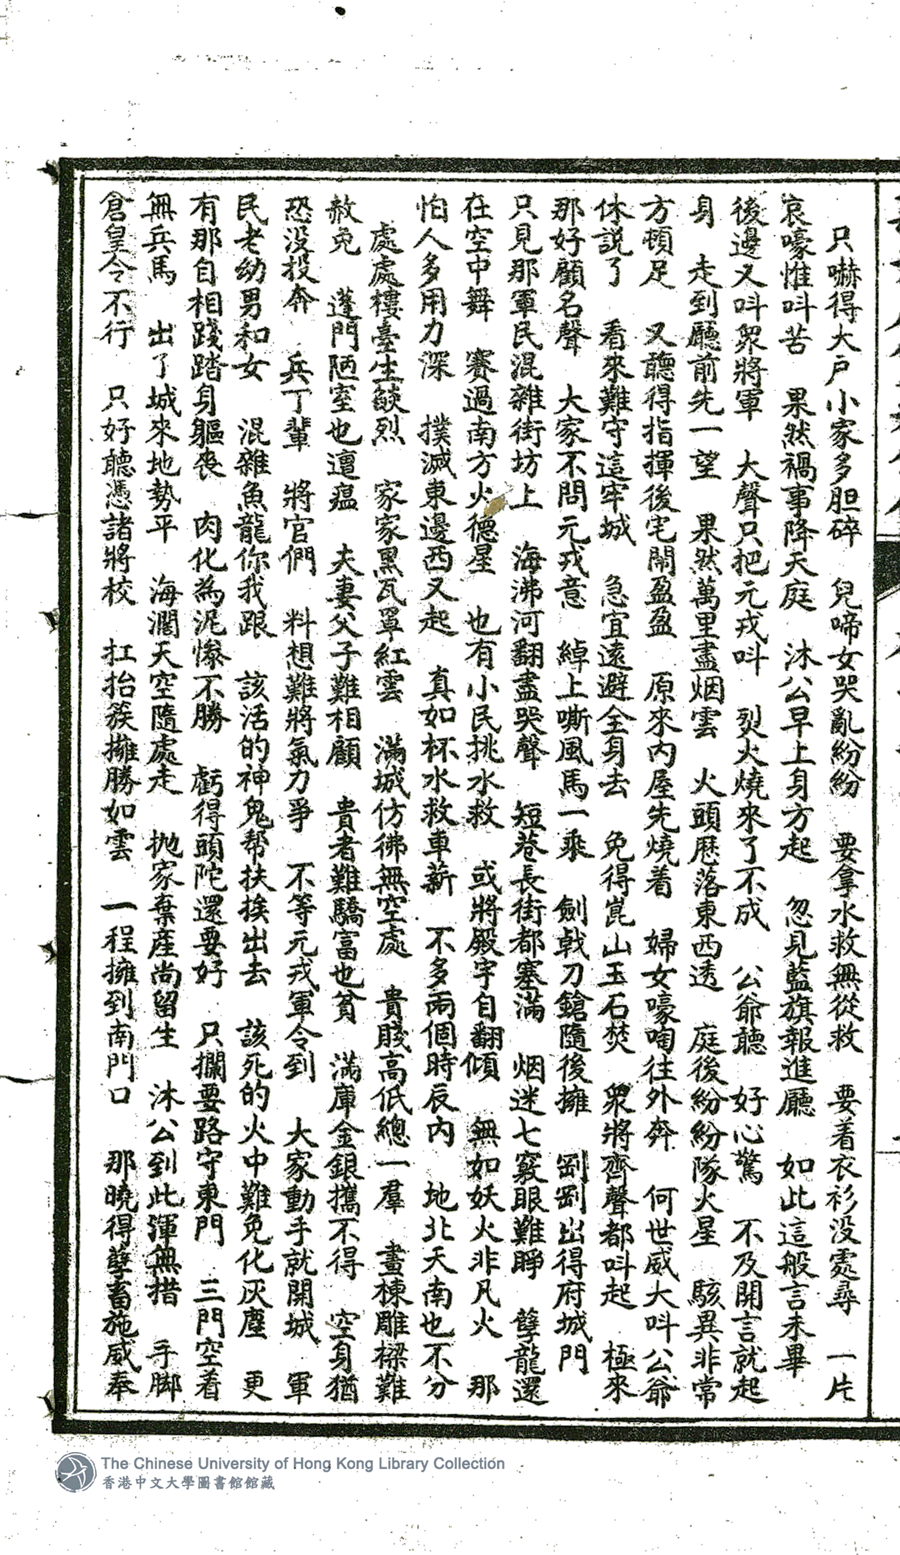 只嚇得大戶小家多胆碎 兒啼女哭亂紛紛 要拿水救無從救 要着衣衫没處尋 一片
哀嚎惟呌苦 果然禍事降天庭 沐公早上身方起 忽見藍旗報進廳 如此這般言未畢
後邊又呌眾將軍 大聲只把元戎呌 烈火燒來了不成 公爺聽 好心驚 不及開言就起
身 走到廳前先一望 果然萬里盡烟雲 火頭歷落東西透 庭後紛紛隊火星 駭異非常
方頓足 又聽得指揮後宅閙盈盈 原來內屋先燒着 婦女嚎啕往外奔 何世威大呌公爺
休説了 看來難守這牢城 急宜遠避全身去 免得崑山玉石焚 眾將齊聲都呌起 極來
那好顧名聲 大家不問元戎意 綽上嘶風馬一乘 劍戟刀鎗隨後擁 剛剛出得府城門
只見那軍民混雜街坊上 海沸河翻盡哭聲 短巷長街都塞滿 烟迷七竅眼難睜 孽龍還
在空中舞 賽過南方火德星 也有小民挑水救 或將殿宇自翻傾 無如妖火非凡火 那
怕人多用力深 撲滅東邊西又起 真如杯水救車薪 不多兩個時辰內 地北天南也不分
處處樓臺生燄烈 家家黑瓦罩紅雲 滿城仿彿無空處 貴賤高低總一羣 畫棟雕樑難
赦免 蓬門陋室也遭瘟 夫妻父子難相顧 貴者難驕富也貧 滿庫金銀攜不得 空身猶
恐没投奔 兵丁輩 將官們 料想難將氣力爭 不等元戎軍令到 大家動手就開城 軍
民老幼男和女 混雜魚龍你我跟 該活的神鬼帮扶挨出去 該死的火中難免化灰塵 更
有那自相踐踏身軀喪 肉化為泥慘不勝 虧得頭陀還要好 只攔要路守東門 三門空着
無兵馬 出了城來地勢平 海濶天空隨處走 抛家棄產尚留生 沐公到此渾無措 手脚
倉皇令不行 只好聽憑諸將校 扛抬簇擁勝如雲 一程擁到南門口 那曉得孽畜施威奉
The Chinese University of Hong Kong Library Collection
香港中文大學圖書館館藏